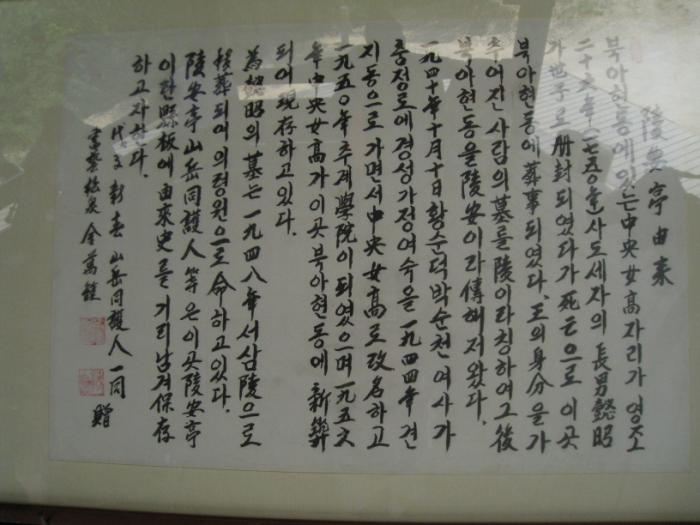 陵安亭由来
북아현동에있는中央女高자리가 영조
二十六年(一七五○年)사도세자의 長男懿昭
가世子로 册封되였다가 死亡으로 이곳
북아현동에 葬事되였다. 王의身分을가
추어진 사람의 墓를陵이라칭하여그後
북아현동을陵安이라傳해저왔다.
一九四十年十月十日황순덕박순천여사가
충정로에경성가정여숙을一九四四年건
지동으로가면서中央女高로改名하고
一九五○年추계學院이되였으며一九五六
年中央女高가이곳북아현동에新築
되어現存하고있다.
為懿昭의墓는一九四八年서삼陵으로
移葬되어의령원으로命하고있다.
陵安亭山岳同護人等은이곳陵安亭
이란縣板에由來史를기리남겨保存
하고자한다.
山岳同護人一同 贈
金萬鐘